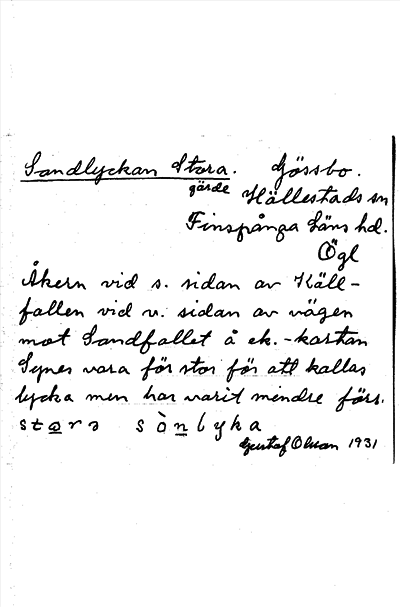 Sandlyckan Stora. Gössbo.
gärde Hällestads sn
Finspånga läns hd.
Ögl
Åkern vid s. sidan av Käll-
fallen vid v. sidan av vägen
mot Sandfallet å ek.-kartan
Synes vara för stor för att kallas
lycka men har varit mindre förr.
stərə sànlyka
Gustaf Olsson 1931